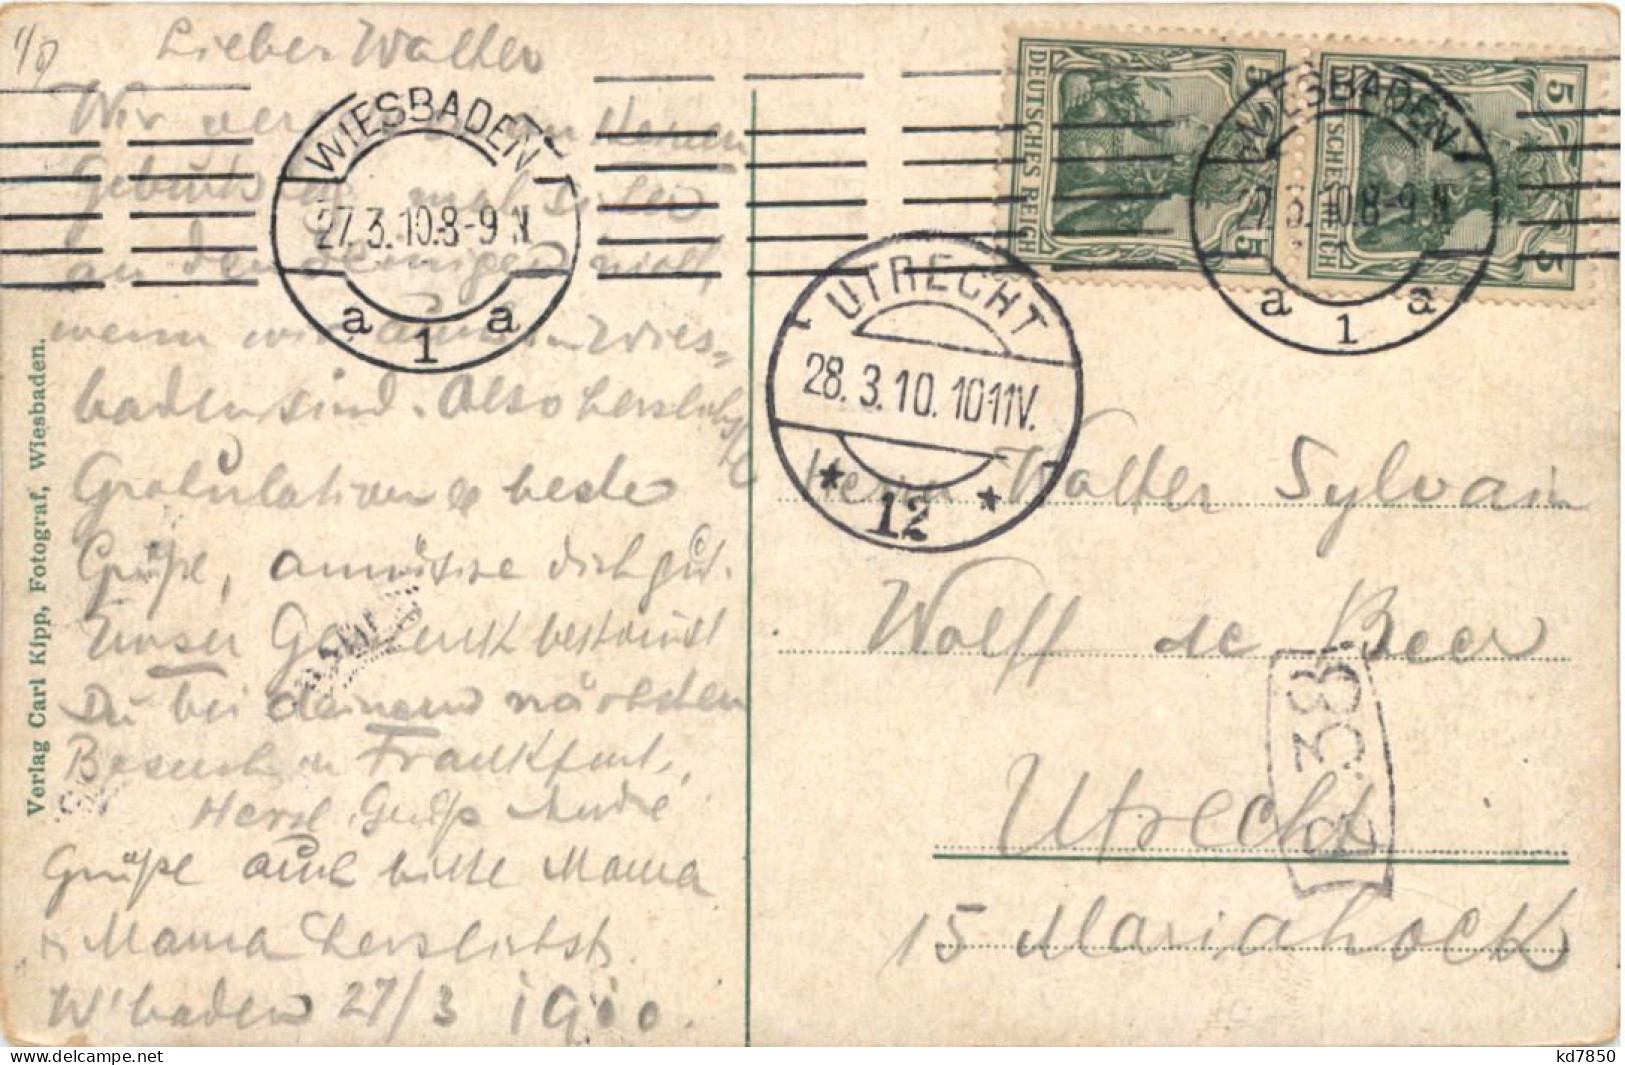 Lieber Walther
Wir
Geburtstag mal
an
wenn wir auch in Wies-
baden sind. Also herzlichste
Gratulation & beste
Grüße, amüsire dich gut.
Unser Geschenk bekommst
Du bei deinem nächsten
Besuch in Frankfurt,
Herzl. Gruß André
Grüße auch bitte Mama
Mama herzlichst.
W'baden 27/3 1910.
Verlag Carl Kipp, Fotograf, Wiesbaden.
WIESBADEN
27.3.10.8-9 N
a 1 a
DEUTSCHES REICH
5 5
DEUTSCHES REICH
5 5
WIESBADEN
27.3.10.8-9 N
a 1 a
UTRECHT
28.3.10.10-11V.
* 12 *
Herrn Walter Sylvain
Wolff de Beer
Utrecht
15 Mariahoek
38
kd7850